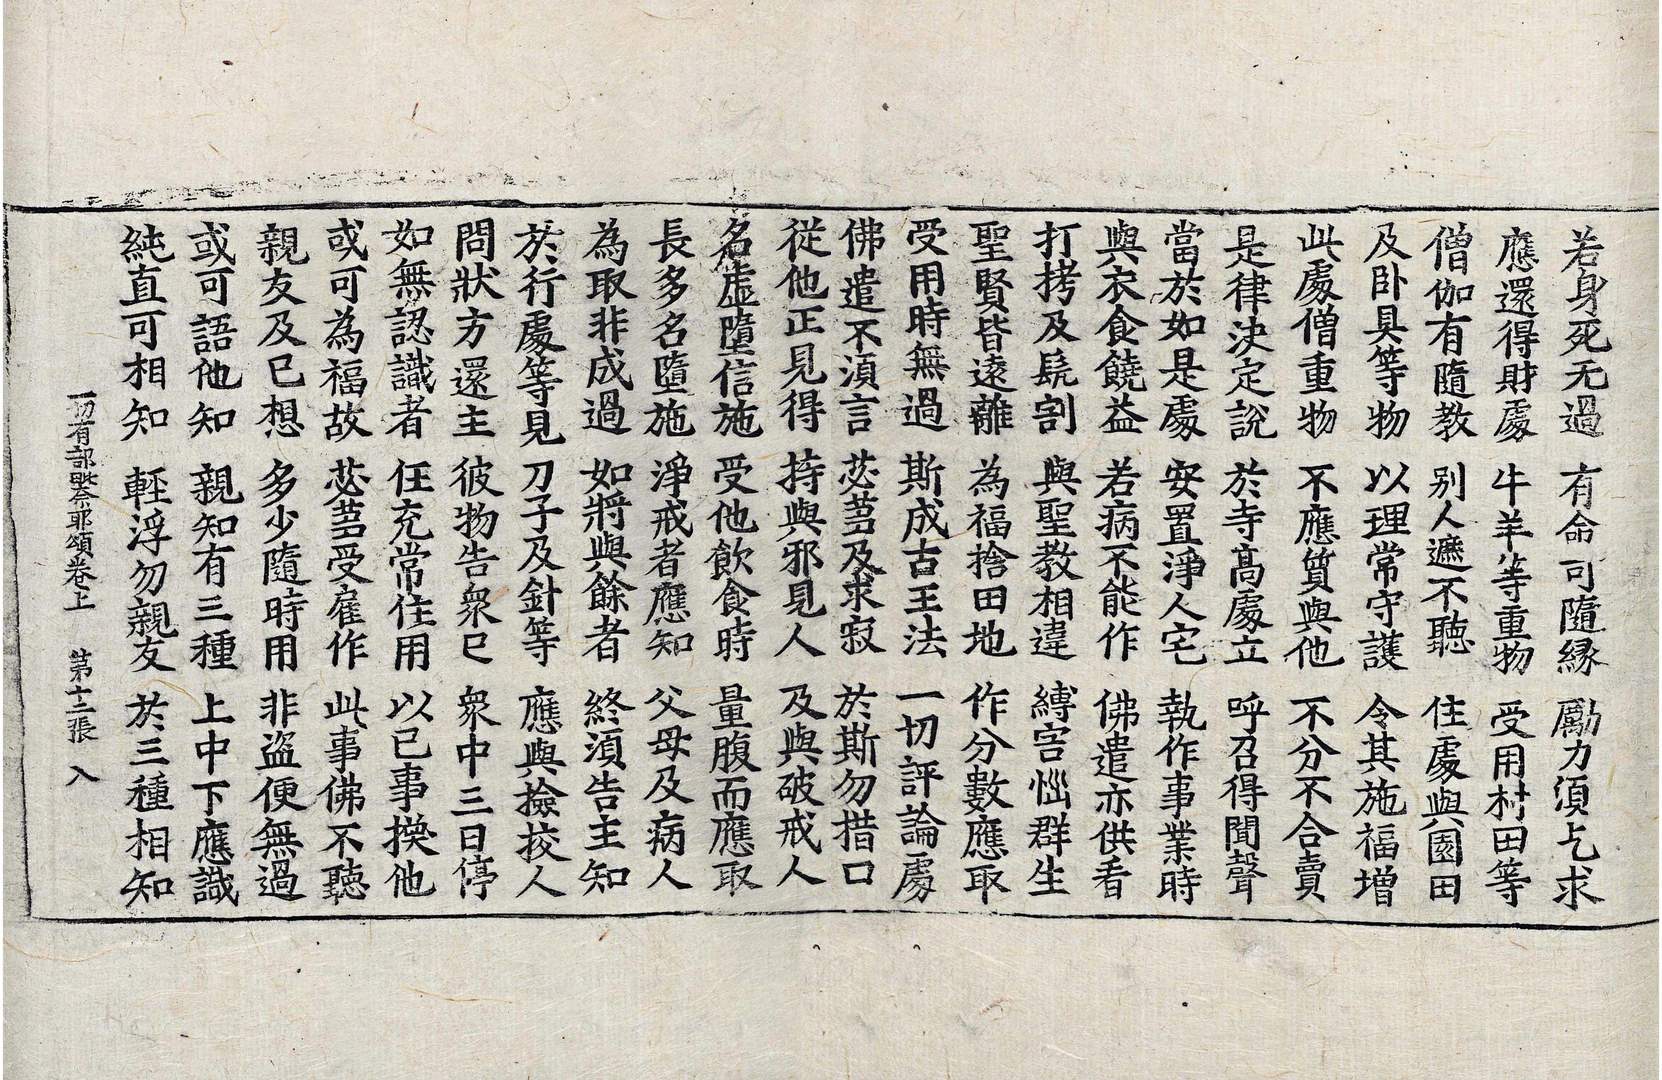 若身死无過 有命可隨縁 勵力須乞求
應還得財處 牛羊等重物 受用村田等
僧伽有隨教 别人遮不聽 住處與園田
及卧具等物 以理常守護 令其施福增
此處僧重物 不應質與他 不分不合賣
是律決定說 於寺高處立 呼召得聞聲
當於如是處 安置淨人宅 執作事業時
與衣食饒益 若病不能作 佛遣亦供看
打拷及髡割 與聖教相違 縛害惱群生
聖賢皆遠離 為福捨田地 作分數應取
受用時無過 斯成古王法 一切評論處
佛遣不須言 苾芻及求寂 於斯勿措口
從他正見得 持與邪見人 及與破戒人
名虛墮信施 受他飲食時 量腹而應取
長多名墮施 淨戒者應知 父母及病人
為取非成過 如將與餘者 終須告主知
於行處等見 刀子及針等 應與撿挍人
問狀方還主 彼物告衆已 衆中三日停
如無認識者 任充常住用 以已事換他
或可為福故 苾芻受雇作 此事佛不聽
親友及已想 多少隨時用 非盜便無過
或可語他知 親知有三種 上中下應識
純直可相知 輕浮勿親友 於三種相知
一切有部毗奈耶頌卷上 第十二張 入